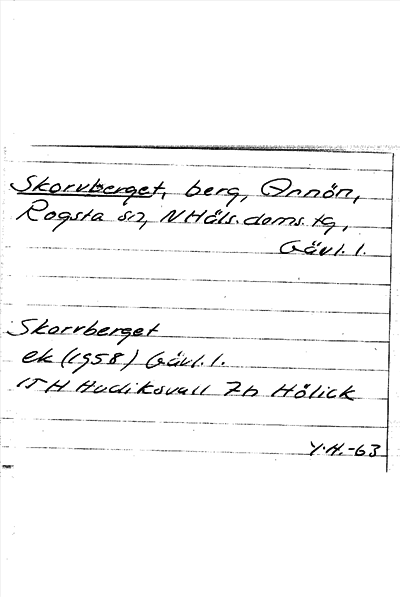 Skorvberget, berg, Ornön,
Rogsta sn, N Häls. doms. tg,
Gävl. l.
Skorvberget
ek (1958) Gävl. l.
15H Hudiksvall 7h Hölick
Y.H.-63